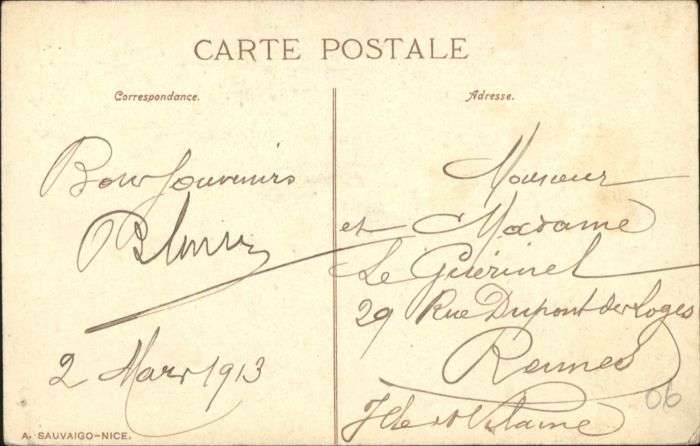 CARTE POSTALE
Correspondance.
Bons Souvenirs
2 Mars 1913
A. SAUVAIGO–NICE.
Adresse.
Monsieur
et Madame
Le Guérinel
29 Rue Dupont des Loges
Rennes
Ille et Vilaine
06